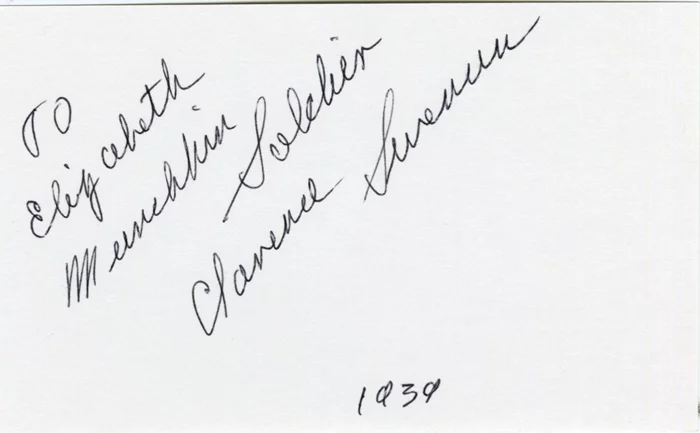 To
Elizabeth
Munchkin Soldier
Clarence Swensen
1939